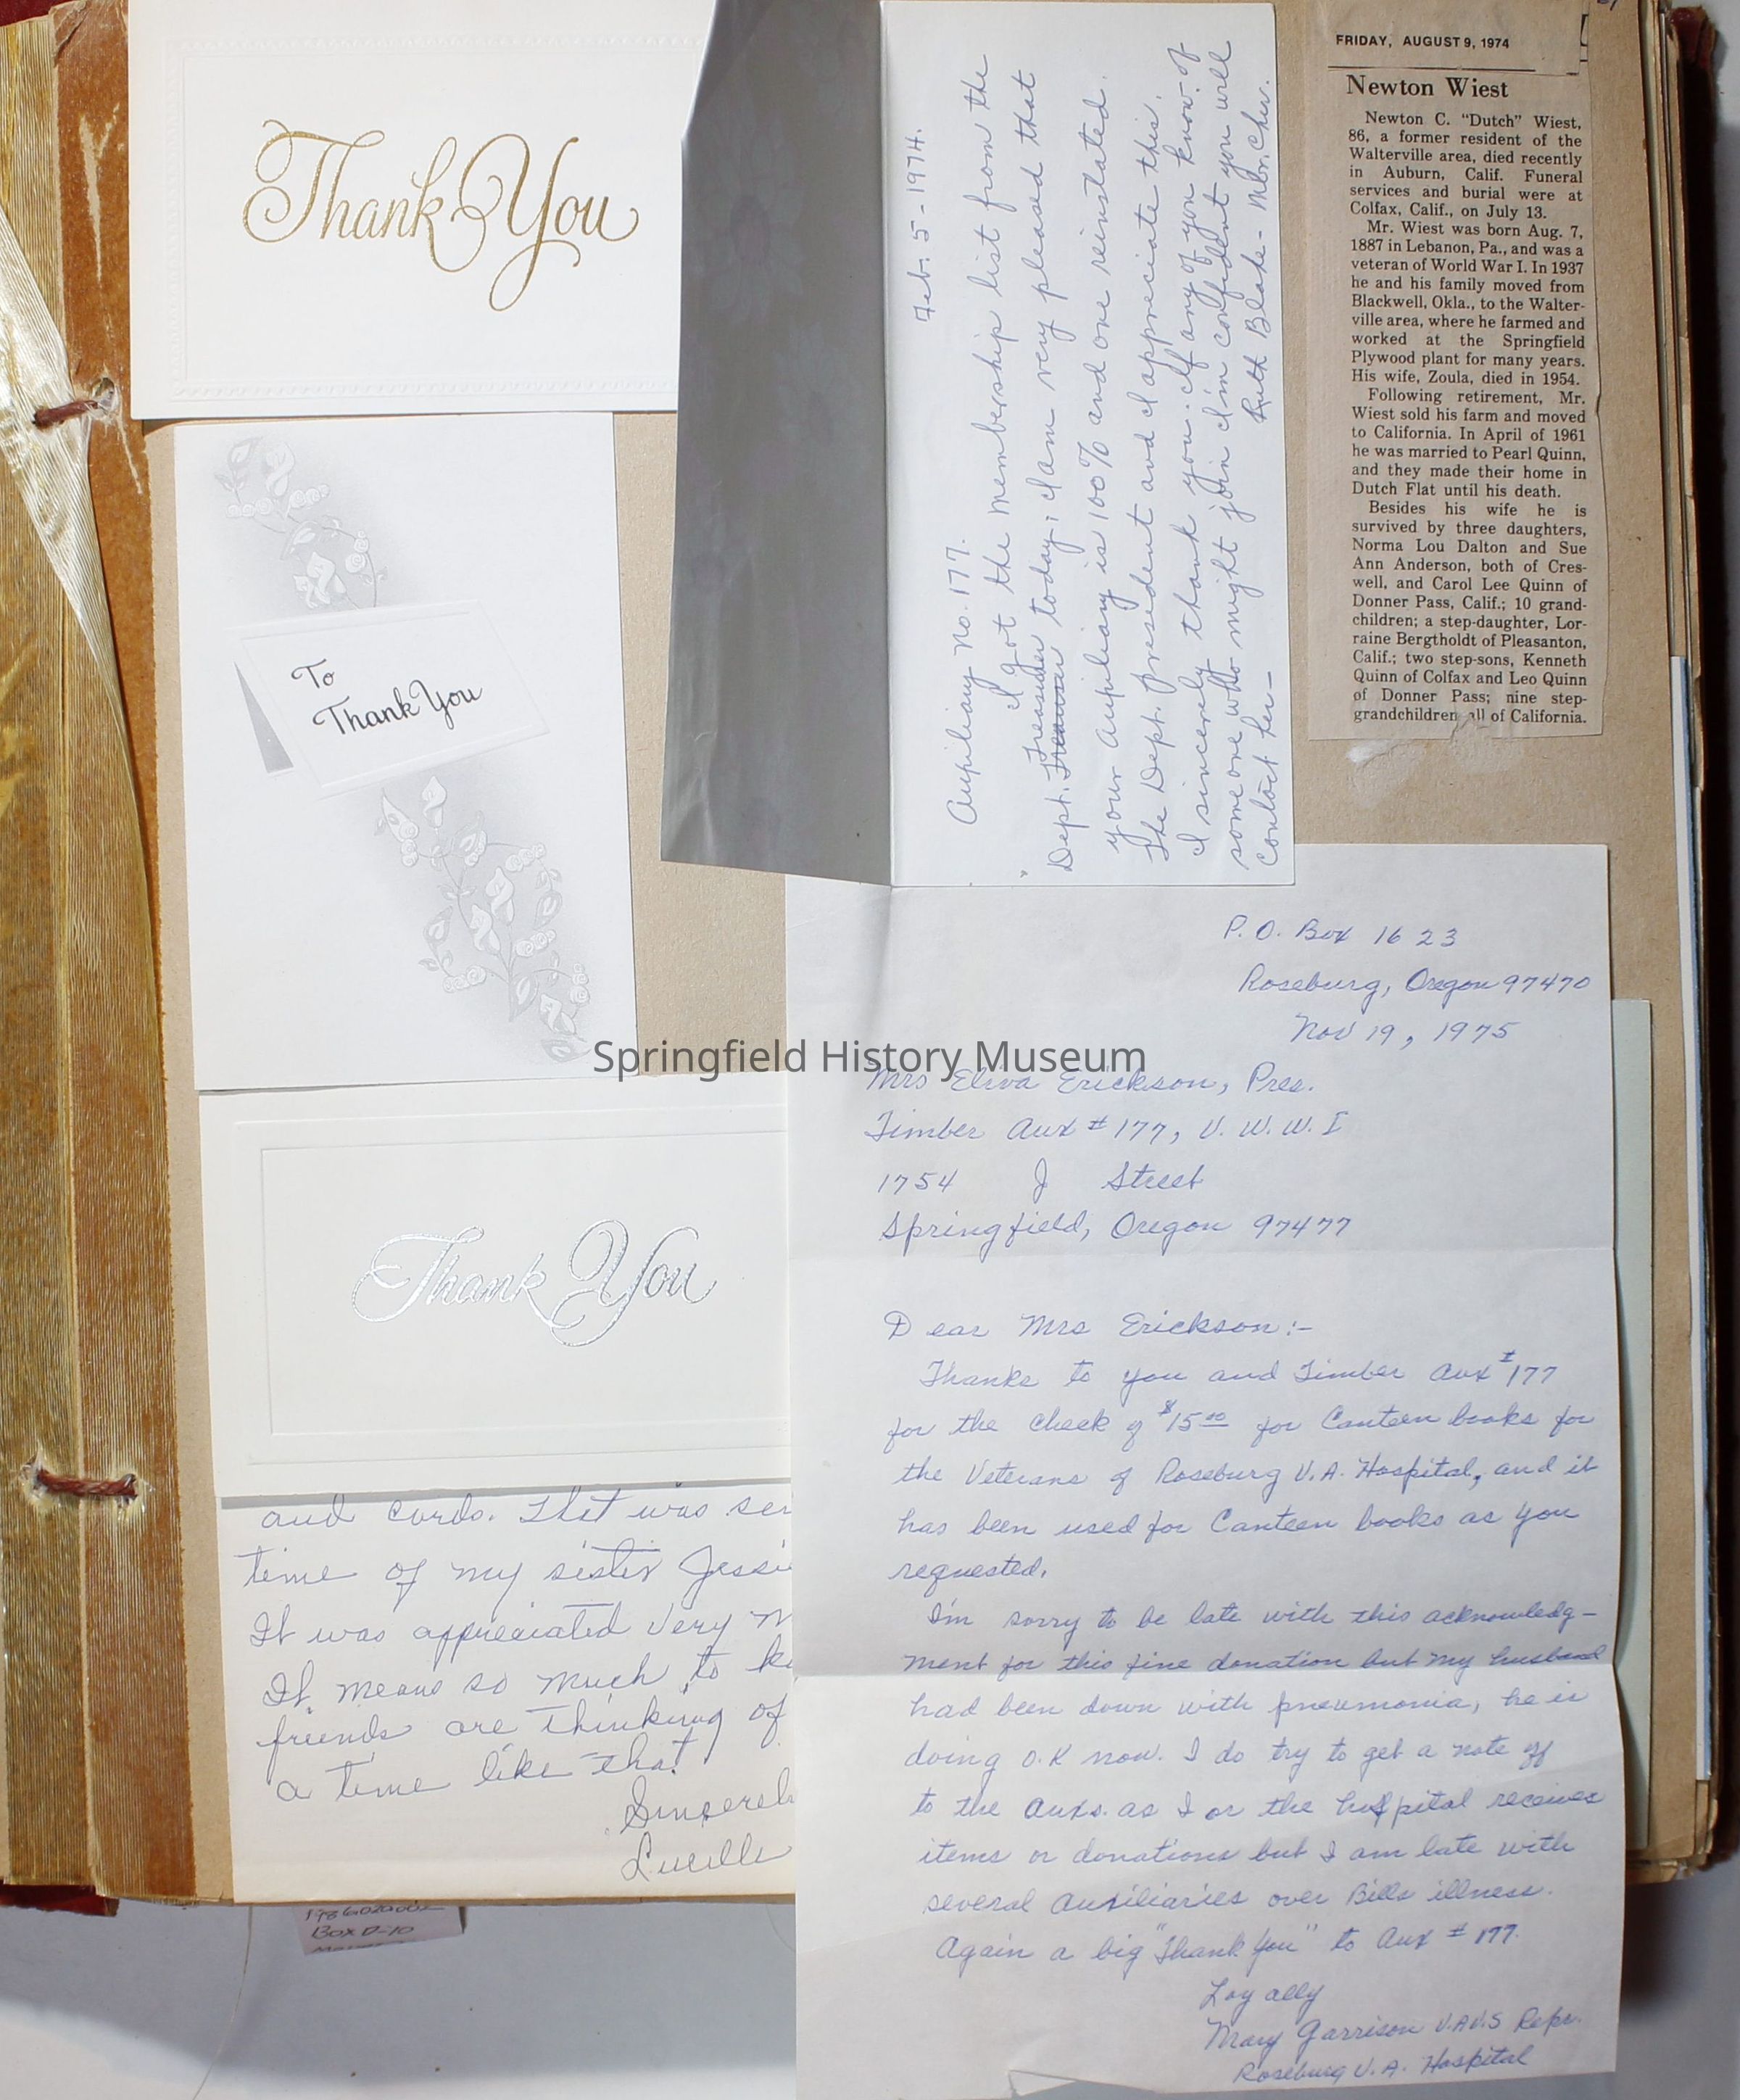 Thank You
To
Thank You
Thank You
and cards. That was
time of my sister Jessie
It was appreciated very
It means so much to
friends are thinking of
a time like that
Sincerel
Lucille
Box D-10
Feb. 5 - 1974.
Auxiliary No. 177.
I got the membership list from the
Treasurer
Dept. today; I am very pleased that
your Auxiliary is 100% and one reinstated.
The Dept. president and I appreciate this.
I sincerely thank you. If any of you know of
someone who might join I'm confident you will
contact her —
Ruth Blake - Mbr. Chr.
FRIDAY, AUGUST 9, 1974
Newton Wiest
Newton C. "Dutch" Wiest,
86, a former resident of the
Walterville area, died recently
in Auburn, Calif. Funeral
services and burial were at
Colfax, Calif., on July 13.
Mr. Wiest was born Aug. 7,
1887 in Lebanon, Pa., and was a
veteran of World War I. In 1937
he and his family moved from
Blackwell, Okla., to the Walter-
ville area, where he farmed and
worked at the Springfield
Plywood plant for many years.
His wife, Zoula, died in 1954.
Following retirement, Mr.
Wiest sold his farm and moved
to California. In April of 1961
he was married to Pearl Quinn,
and they made their home in
Dutch Flat until his death.
Besides his wife he is
survived by three daughters,
Norma Lou Dalton and Sue
Ann Anderson, both of Cres-
well, and Carol Lee Quinn of
Donner Pass, Calif.; 10 grand-
children; a step-daughter, Lor-
raine Bergtholdt of Pleasanton,
Calif.; two step-sons, Kenneth
Quinn of Colfax and Leo Quinn
of Donner Pass; nine step-
grandchildren all of California.
P.O. Box 1623
Roseburg, Oregon 97470
Nov 19, 1975
Springfield History Museum
Mrs Eliva Erickson, Pres.
Timber Aux # 177, V. W. W. I
1754 J Street
Springfield, Oregon 97477
Dear Mrs Erickson:-
Thanks to you and Timber Aux #177
for the check of $15.00 for Canteen books for
the Veterans of Roseburg V.A. Hospital, and it
has been used for Canteen books as you
requested.
I'm sorry to be late with this acknowledg-
ment for this fine donation but my husband
had been down with pneumonia, he is
doing O.K now. I do try to get a note off
to the Auxs. as I or the hospital receives
items or donations but I am late with
several Auxiliaries over Bills illness.
Again a big "Thank You" to Aux # 177.
Loyally
Mary Garrison V.A.V.S Repr.
Roseburg V.A. Hospital